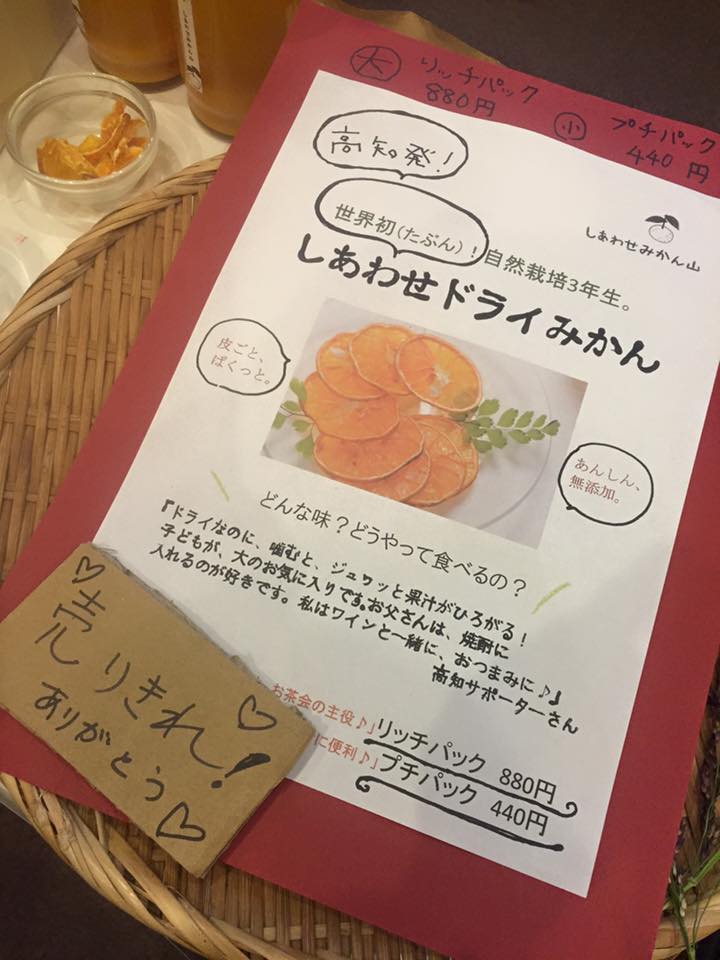 大 リッチパック
880円
小 プチパック
440円
高知発!
しあわせみかん山
世界初(たぶん)!自然栽培3年生。
しあわせドライみかん
皮ごと、
ぱくっと。
あんしん、
無添加。
どんな味?どうやって食べるの?
『ドライなのに、噛むと、ジュワッと果汁がひろがる!
子どもが、大のお気に入りです。お父さんは、焼酎に
入れるのが好きです。私はワインと一緒に、おつまみに♪』
高知サポーターさん
お茶会の主役♪」リッチパック 880円
に便利♪」プチパック 440円
売りきれ!
ありがとう